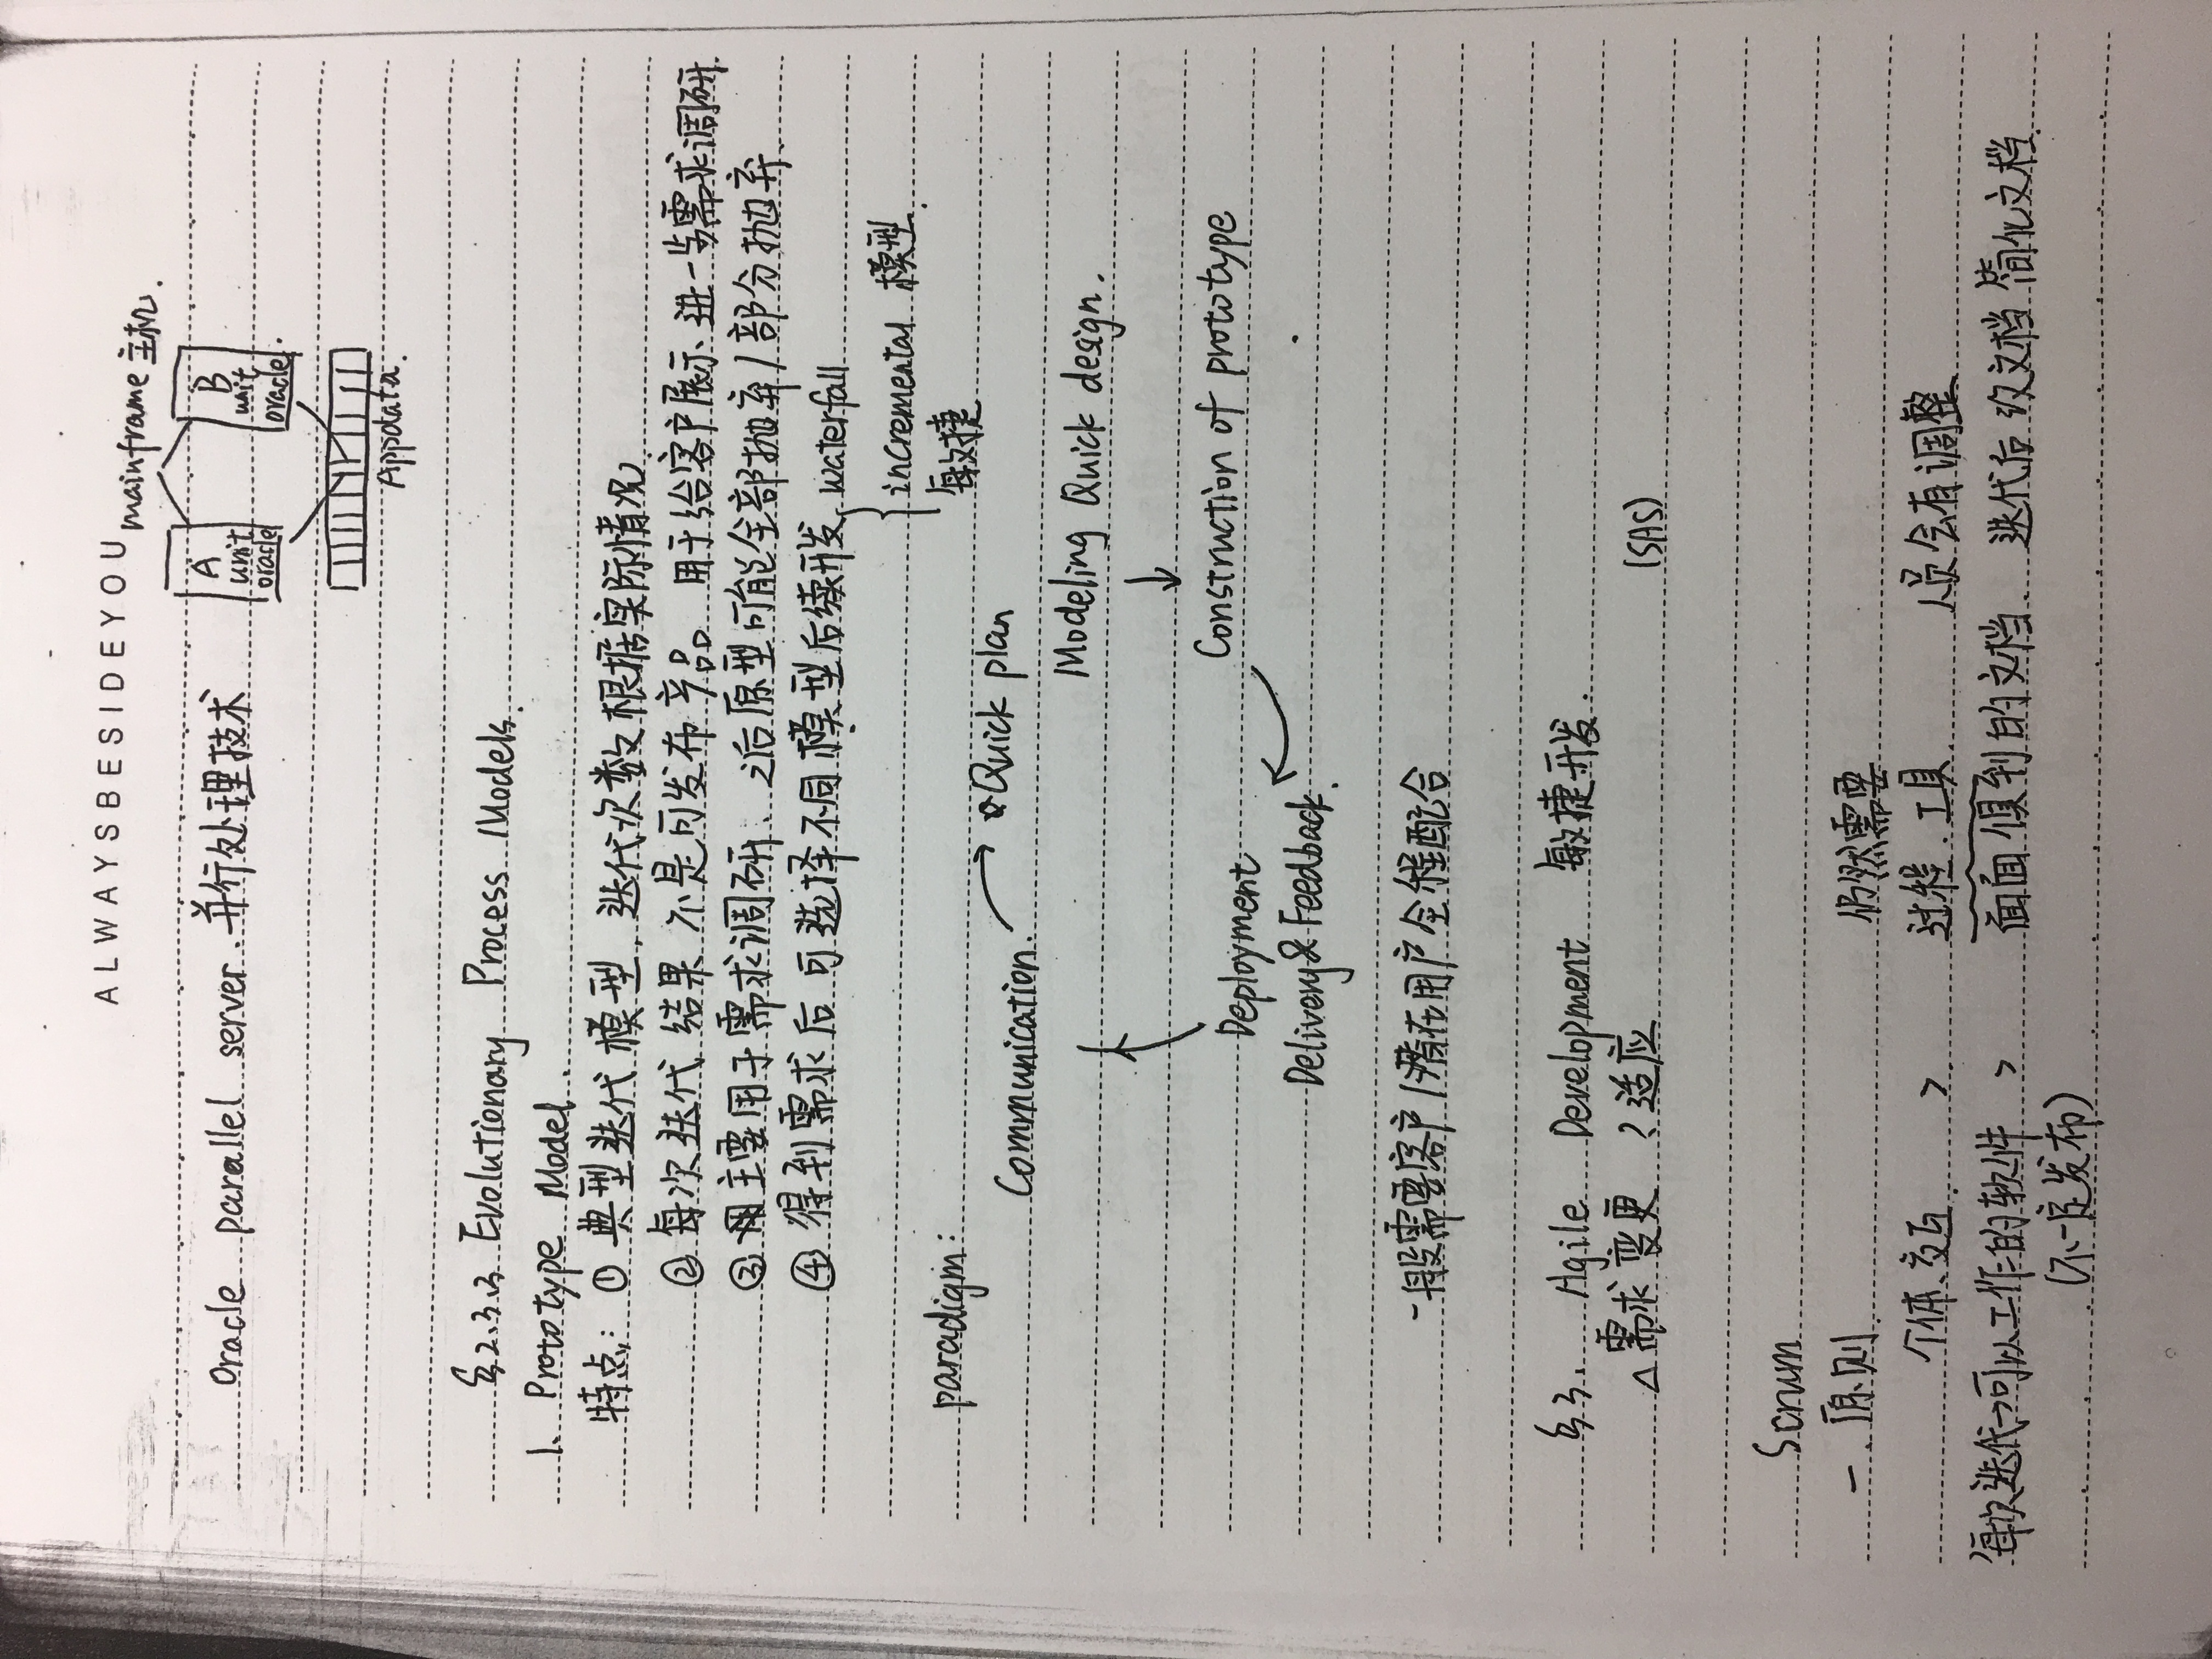 ALWAYSBESIDEYOU
mainframe 主机.
oracle parallel server. 并行处理技术
A unit oracle
B unit oracle.
Appdata.
§2.3.3 Evolutionary Process Models.
1. Prototype Model.
特点: ① 典型迭代模型, 迭代次数根据实际情况.
② 每次迭代 结果 不是可发布产品 用于给客户展示、进一步需求调研.
③ 主要用于需求调研、之后原型可能全部抛弃/部分抛弃.
④ 得到需求后 可选择不同模型后续开发 waterfall
incremental 模型.
敏捷
paradigm:
Communication. Quick plan
Modeling Quick design.
Construction of prototype
Deployment
Delivery & Feedback.
一般需要客户/潜在用户全程配合
§3. Agile Development 敏捷开发.
△需求变更 ? 适应 (SAS)
Scrum
一. 原则.
仍然需要
个体、交互. > 过程、工具. 人员会有调整
每次迭代→可以工作的软件 > 面面俱到的文档、迭代后 改文档 简化文档.
(不一定发布)